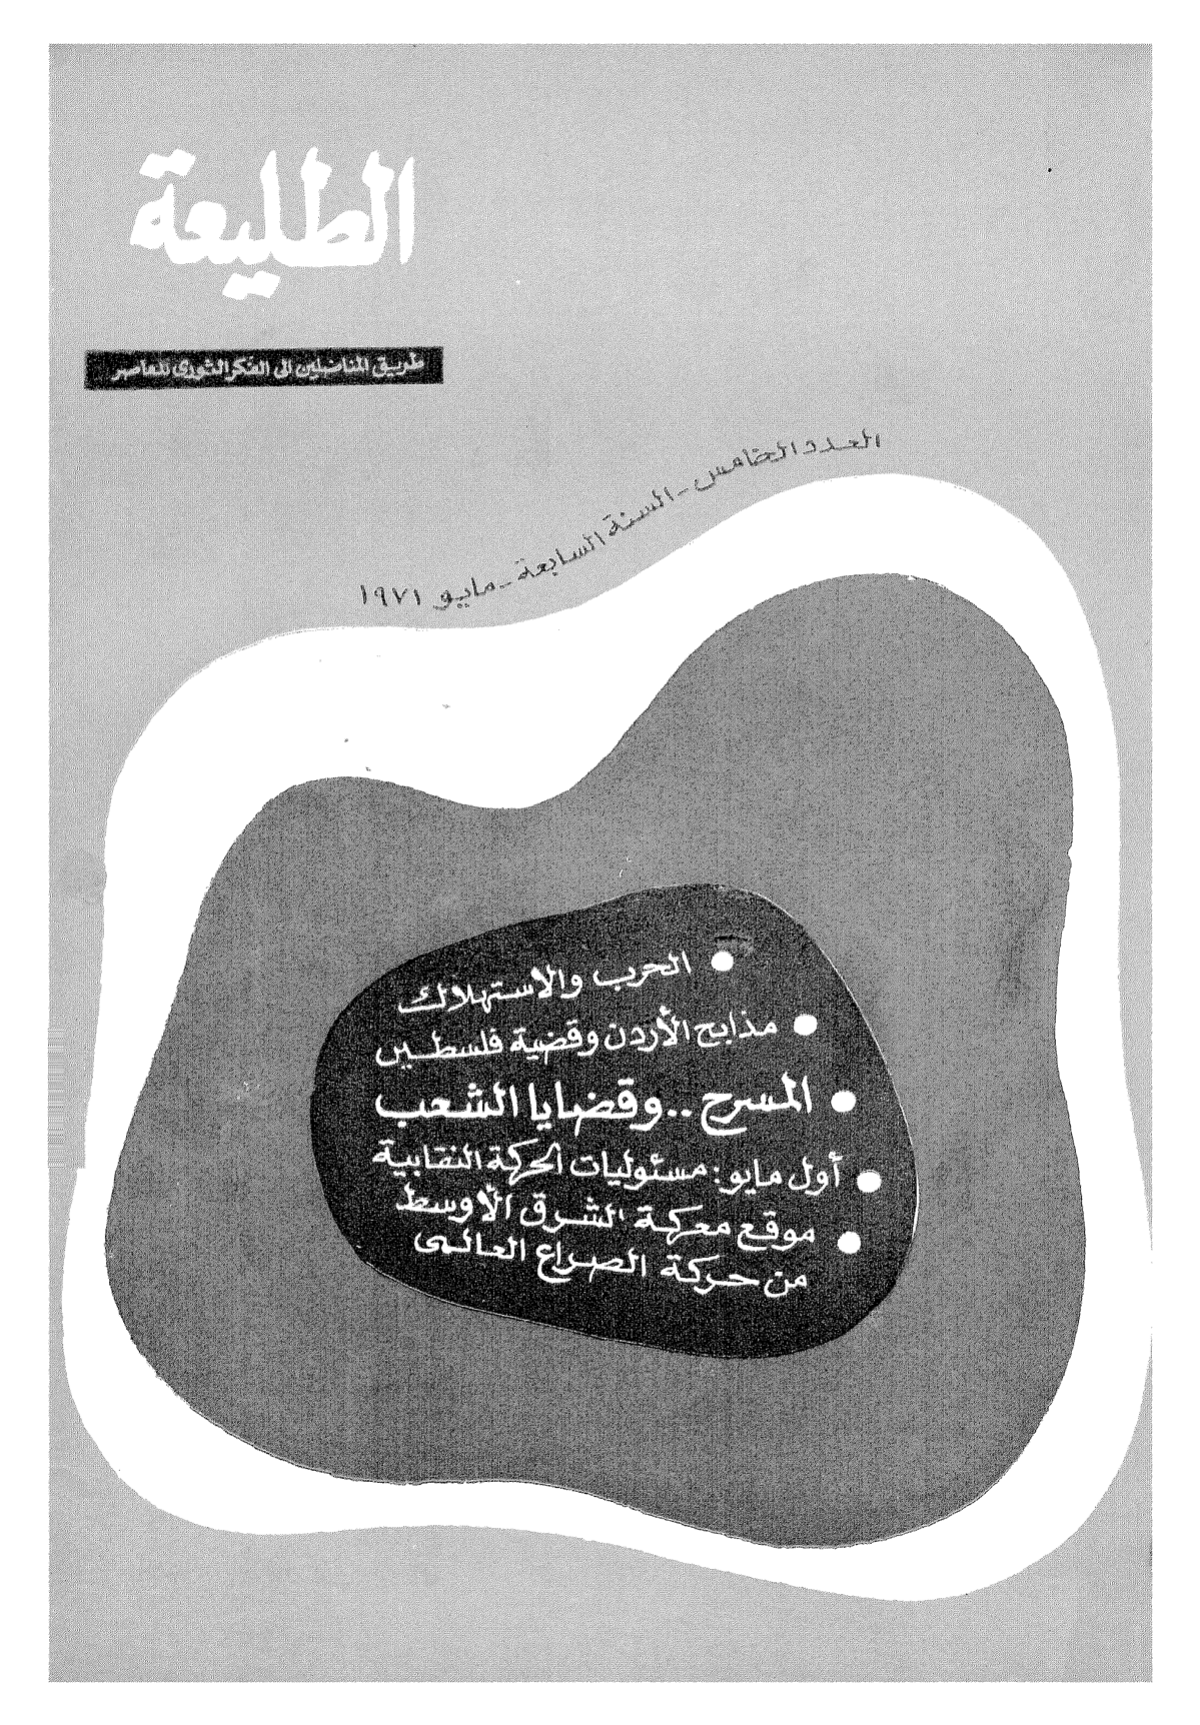 الطليعة
طريق المناضلين الى الفكر الثورى المعاصر
العدد الخامس - السنة السابعة - مايو ١٩٧١
● الحرب والاستهلاك
● مذابح الأردن وقضية فلسطين
● المسرح .. وقضايا الشعب
● أول مايو: مسئوليات الحركة النقابية
● موقع معركة الشرق الأوسط
من حركة الصراع العالمى